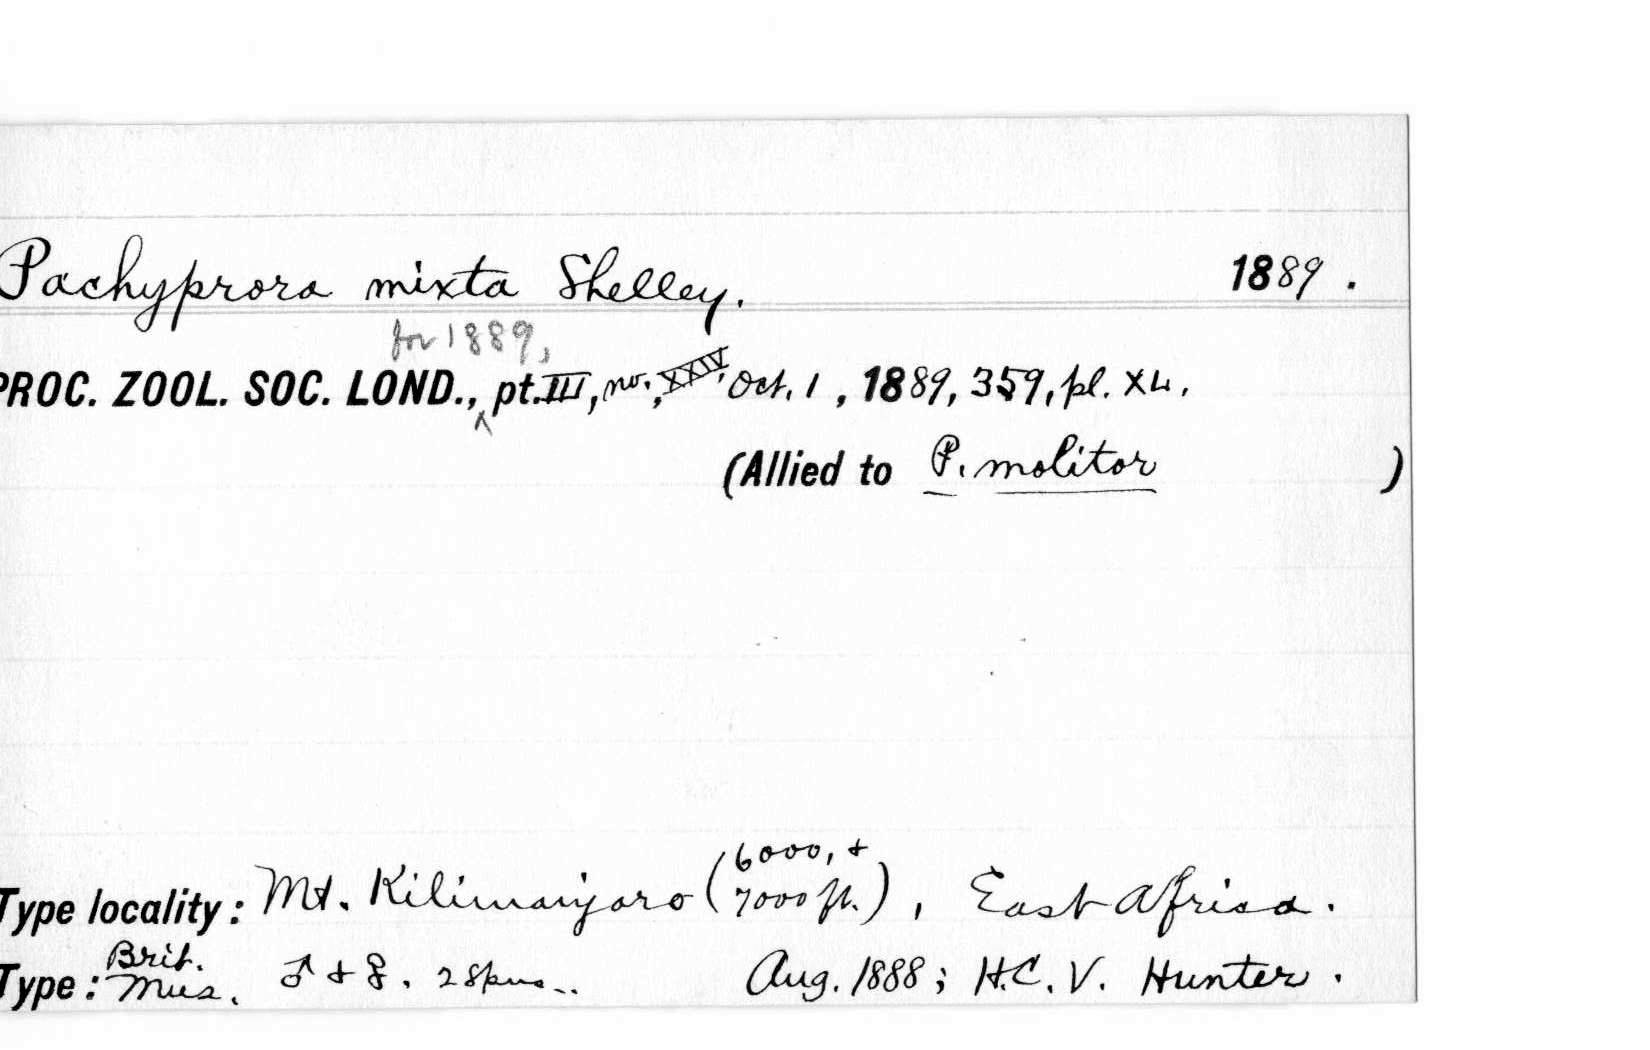 Pachyprora mixta Shelley. 1889.
for 1889,
PROC. ZOOL. SOC. LOND., ^ pt. III, no., XXIV, Oct. 1, 1889, 359, pl. XL.
(Allied to P. molitor )
Type locality: Mt. Kilimanjaro (6000, + 7000 ft.), East Africa.
Type: Brit. Mus. ♂ + ♀. 2 spms.. Aug. 1888; H.C.V. Hunter.